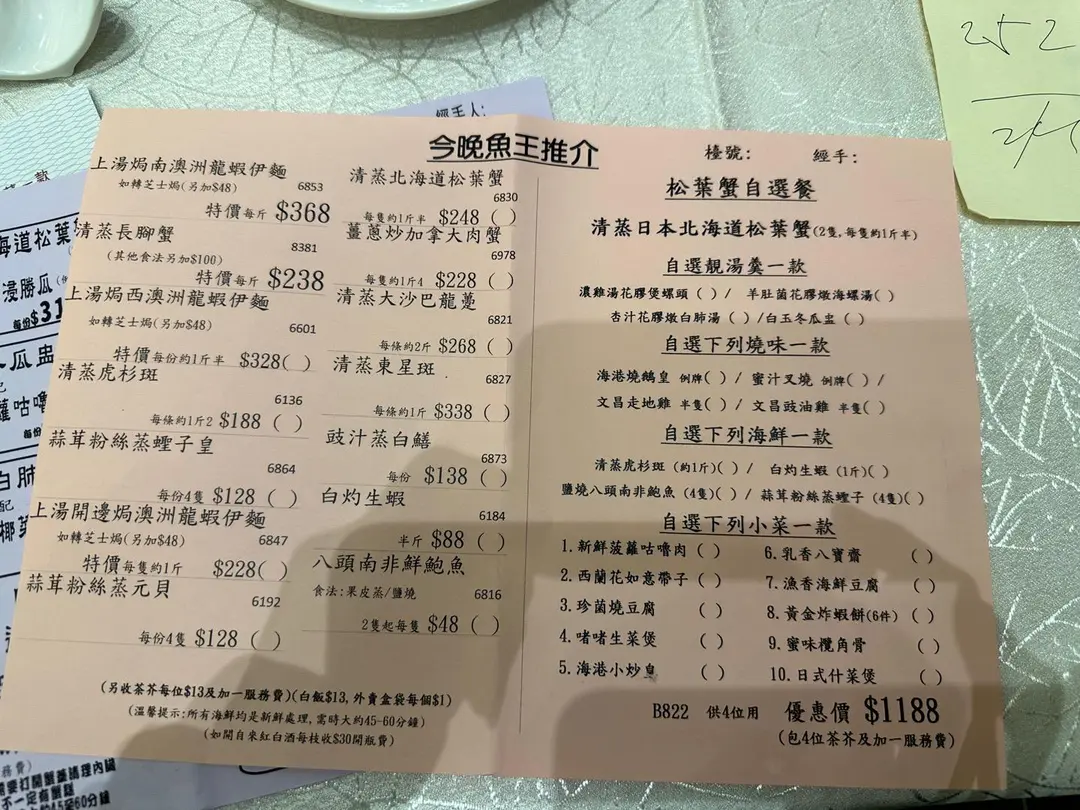 經手人:
252
今晚魚王推介
上湯焗南澳洲龍蝦伊麵
如轉芝士焗(另加$48) 6853
特價每斤 $368
清蒸長腳蟹
(其他食法另加$100) 8381
特價每斤 $238
上湯焗西澳洲龍蝦伊麵
如轉芝士焗(另加$48) 6601
特價每份約1斤半 $328( )
清蒸虎杉斑
6136
每條約1斤2 $188 ( )
蒜茸粉絲蒸蟶子皇
6864
每份4隻 $128 ( )
上湯開邊焗澳洲龍蝦伊麵
如轉芝士焗(另加$48) 6847
特價每隻約1斤 $228( )
蒜茸粉絲蒸元貝
6192
每份4隻 $128 ( )
清蒸北海道松葉蟹
6830
每隻約1斤半 $248 ( )
薑蔥炒加拿大肉蟹
6978
每隻約1斤4 $228 ( )
清蒸大沙巴龍躉
6821
每條約2斤 $268 ( )
清蒸東星斑
6827
每條約1斤 $338 ( )
豉汁蒸白鱔
6873
每份 $138 ( )
白灼生蝦
6184
半斤 $88 ( )
八頭南非鮮鮑魚
食法:果皮蒸/鹽燒 6816
2隻起每隻 $48 ( )
(另收茶芥每位$13及加一服務費)(白飯$13, 外賣盒袋每個$1)
(溫馨提示:所有海鮮均是新鮮處理,需時大約45-60分鐘)
(如開自來紅白酒每枝收$30開瓶費)
檯號: 經手:
松葉蟹自選餐
清蒸日本北海道松葉蟹(2隻,每隻約1斤半)
自選靚湯羹一款
濃雞湯花膠煲螺頭 ( ) / 羊肚菌花膠燉海螺湯( )
杏汁花膠燉白肺湯 ( ) /白玉冬瓜盅 ( )
自選下列燒味一款
海港燒鵝皇 例牌( ) / 蜜汁叉燒 例牌( ) /
文昌走地雞 半隻( ) / 文昌豉油雞 半隻( )
自選下列海鮮一款
清蒸虎杉斑 (約1斤)( ) / 白灼生蝦 (1斤)( )
鹽燒八頭南非鮑魚 (4隻)( ) / 蒜茸粉絲蒸蟶子 (4隻)( )
自選下列小菜一款
1.新鮮菠蘿咕嚕肉 ( ) 6.乳香八寶齋 ( )
2.西蘭花如意帶子 ( ) 7.漁香海鮮豆腐 ( )
3.珍菌燒豆腐 ( ) 8.黃金炸蝦餅(6件) ( )
4.啫啫生菜煲 ( ) 9.蜜味欖角骨 ( )
5.海港小炒皇 ( ) 10.日式什菜煲 ( )
B822 供4位用 優惠價 $1188
(包4位茶芥及加一服務費)
海道松葉
浸勝瓜
每份$31
瓜盅
蘿咕嚕
每份
白肺
配
務費)
需要打開蟹蓋清理內臟
不一定有蟹膏